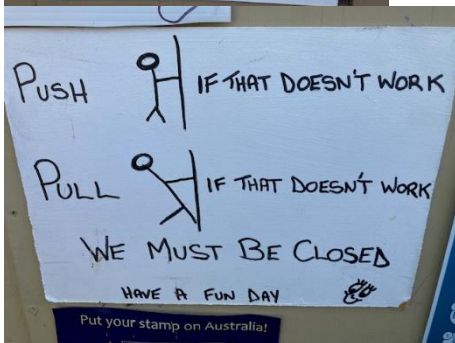 PUSH IF THAT DOESN'T WORK
PULL IF THAT DOESN'T WORK
WE MUST BE CLOSED
HAVE A FUN DAY
Put your stamp on Australia!